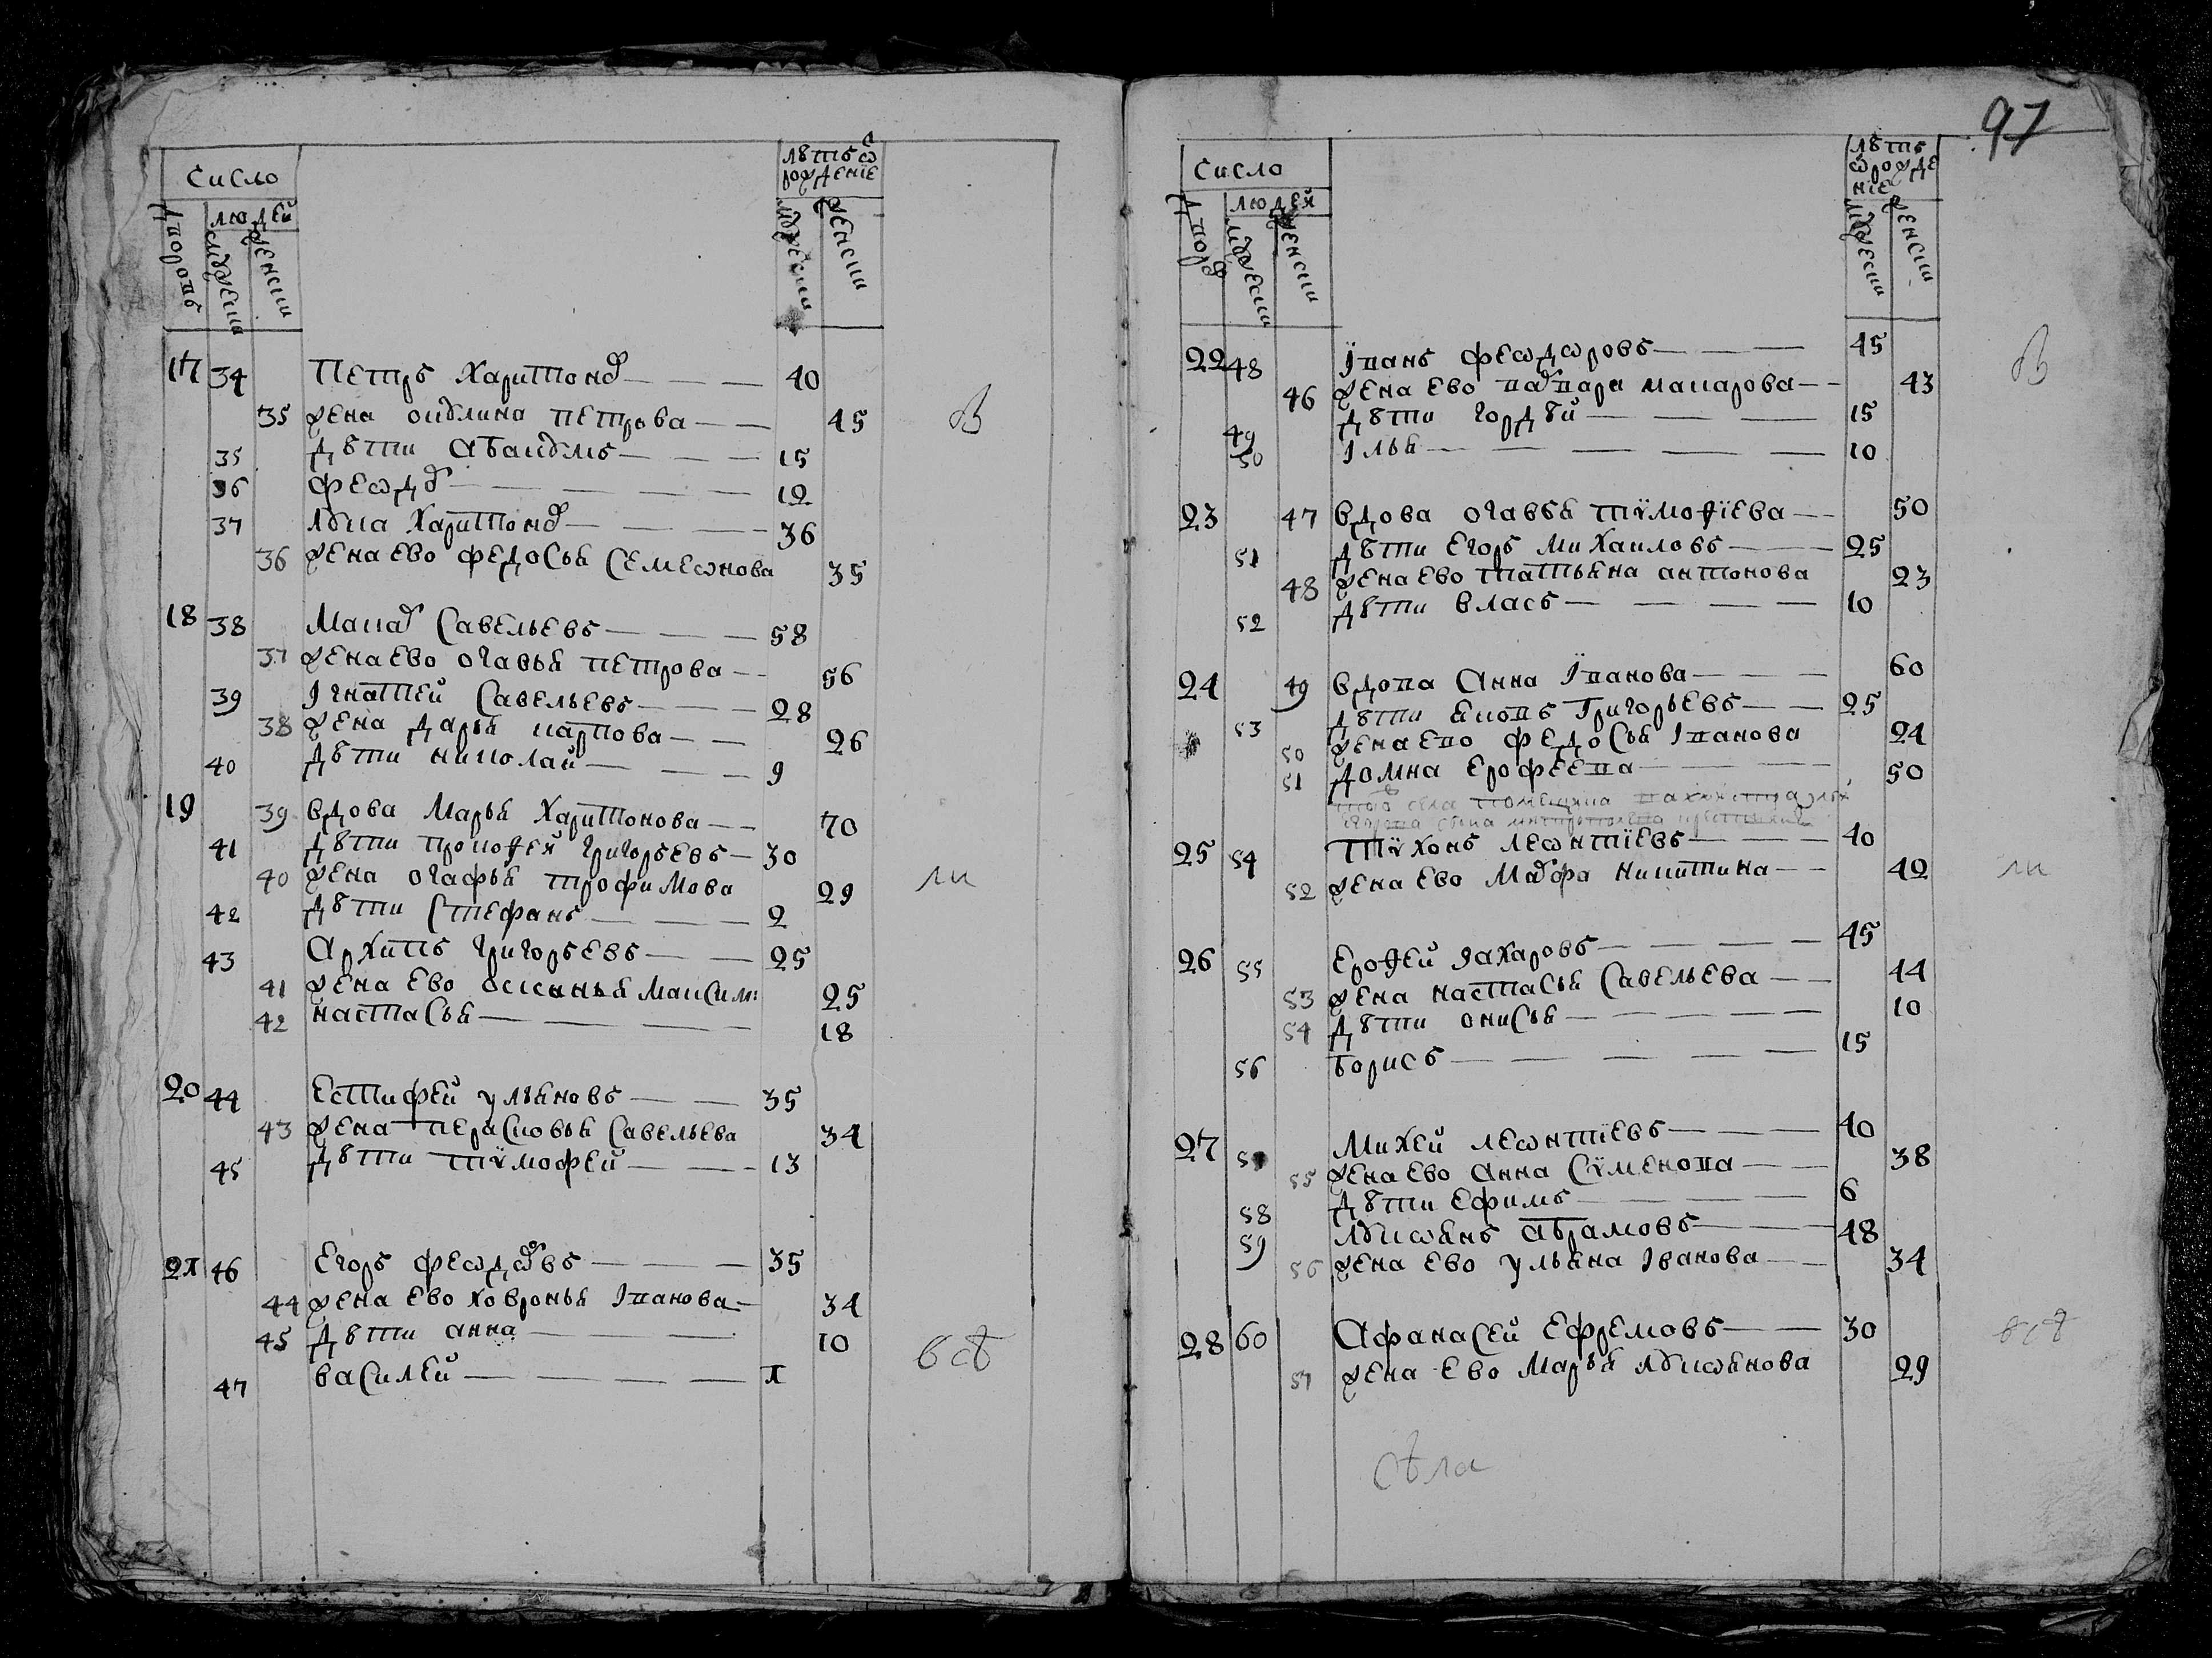 Число
людей
дворовъ
мужеска
женска
лѣтъ ѿ
рожденїе
мужеска
женска
17 34 Петръ Харитоно 40
35 жена Окулина Петрова 45
35 дѣти Абакумъ 15
36 Феѡдо 12
37 Лука Харитоно 36
36 жена ево Федосья Семеѡнова 35
18 38 Мака Савельевъ 58
37 жена ево Огавья Петрова 56
39 Iгнатей Савельевъ 28
38 жена Дарья Карпова 26
40 дѣти Николай 9
19 39 вдова Марья Харитонова 70
41 дѣти Прокоѳей Григорьевъ 30
40 жена Огафья Трофимова 29
42 дѣти Стефанъ 2
43 Архипъ Григорьевъ 25
41 жена ево Оксинья Максим: 25
42 Настасья 18
20 44 Естифей Ульяновъ 35
43 жена Перасковья Савельева 34
45 дѣти Тѵмофей 13
21 46 Егоръ Феѡдѡвъ 35
44 жена ево Ховронья Iванова 34
45 дѣти Анна 10
47 Василей 1
в
ли
всѣ
97
Число
людей
двор
мужеска
женска
лѣтъ
ѿрожде
нїе
мужеска
женска
22 48 Їванъ Феѡдѡровъ 45
46 жена ево Вавара Макарова 43
49 дѣти Гордѣй 15
50 Iлья 10
23 47 вдова Огавья Тѵмоѳїева 50
51 дѣти Егоръ Михаиловъ 25
48 жена ево Татьяна Антонова 23
52 дѣти Власъ 10
24 49 вдова Анна Їванова 60
53 дѣти Яковъ Григорьевъ 25
50 жена ево Федосья Iванова 24
51 Домна Ерофеева 50
села помещика
25 54 Тѵхонъ Леѡнтїевъ 40
52 жена ево Мавфа Никитина 42
26 55 Ероѳей Захаровъ 45
53 жена Настасья Савельева 44
54 дѣти Онисья 10
56 Борисъ 15
27 57 Михей Леѡнтїевъ 40
55 жена ево Анна Сѵменова 38
58 дѣти Ефимъ 6
59 Лукиѡянъ Абрамовъ 48
56 жена ево Ульяна Iванова 34
28 60 Афанасей Ефремовъ 30
57 жена ево Марья Лукиѡянова 29
в
ли
всѣ
сѣла